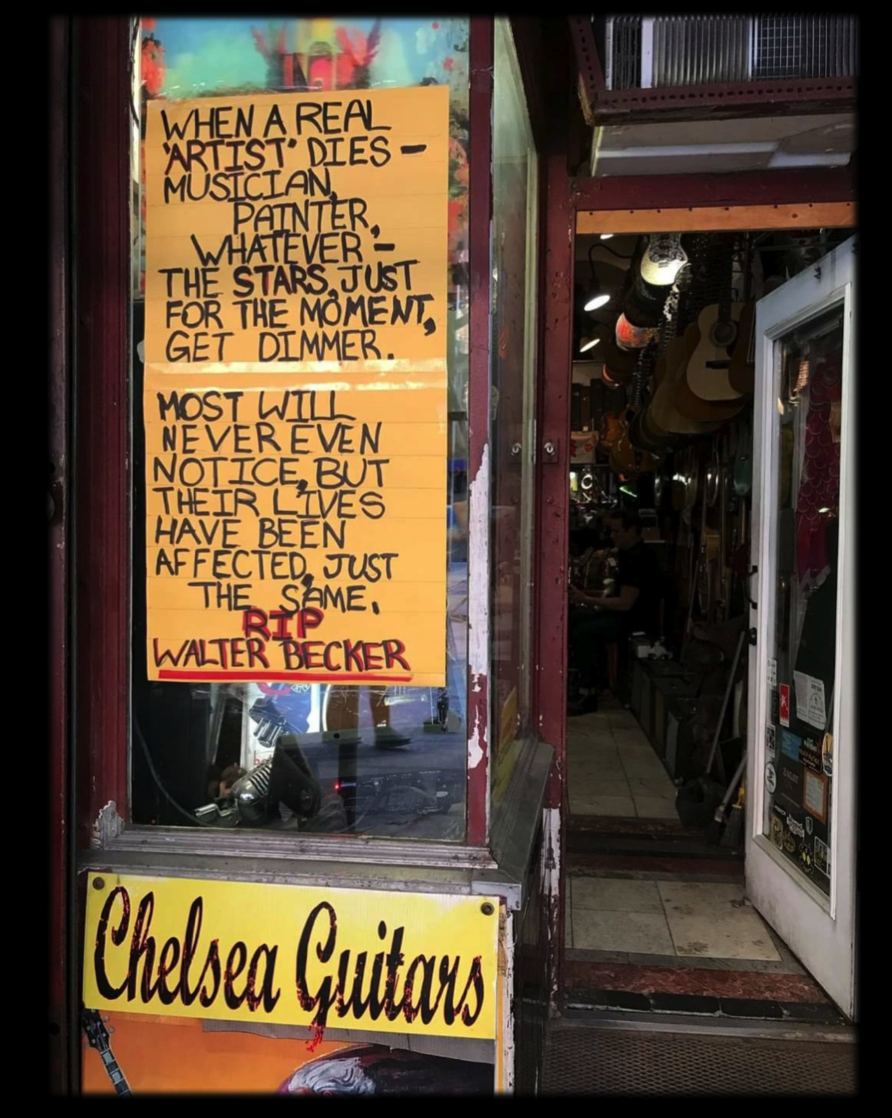 WHEN A REAL
'ARTIST' DIES -
MUSICIAN,
PAINTER,
WHATEVER -
THE STARS, JUST
FOR THE MOMENT,
GET DIMMER.
MOST WILL
NEVER EVEN
NOTICE, BUT
THEIR LIVES
HAVE BEEN
AFFECTED, JUST
THE SAME.
RIP
WALTER BECKER
Chelsea Guitars